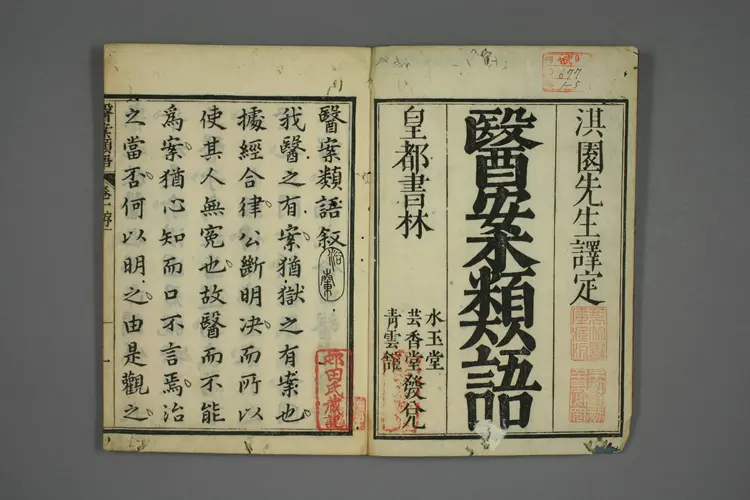 淇園先生譯定
醫案類語
皇都書林
水玉堂
芸香堂發兌
青雲舘
677
1-5
醫案類語叙
我醫之有案猶獄之有案也
據經合律公斷明决而所以
使其人無冤也故醫而不能
爲案猶心知而口不言焉治
之當否何以明之由是觀之
醫案類語